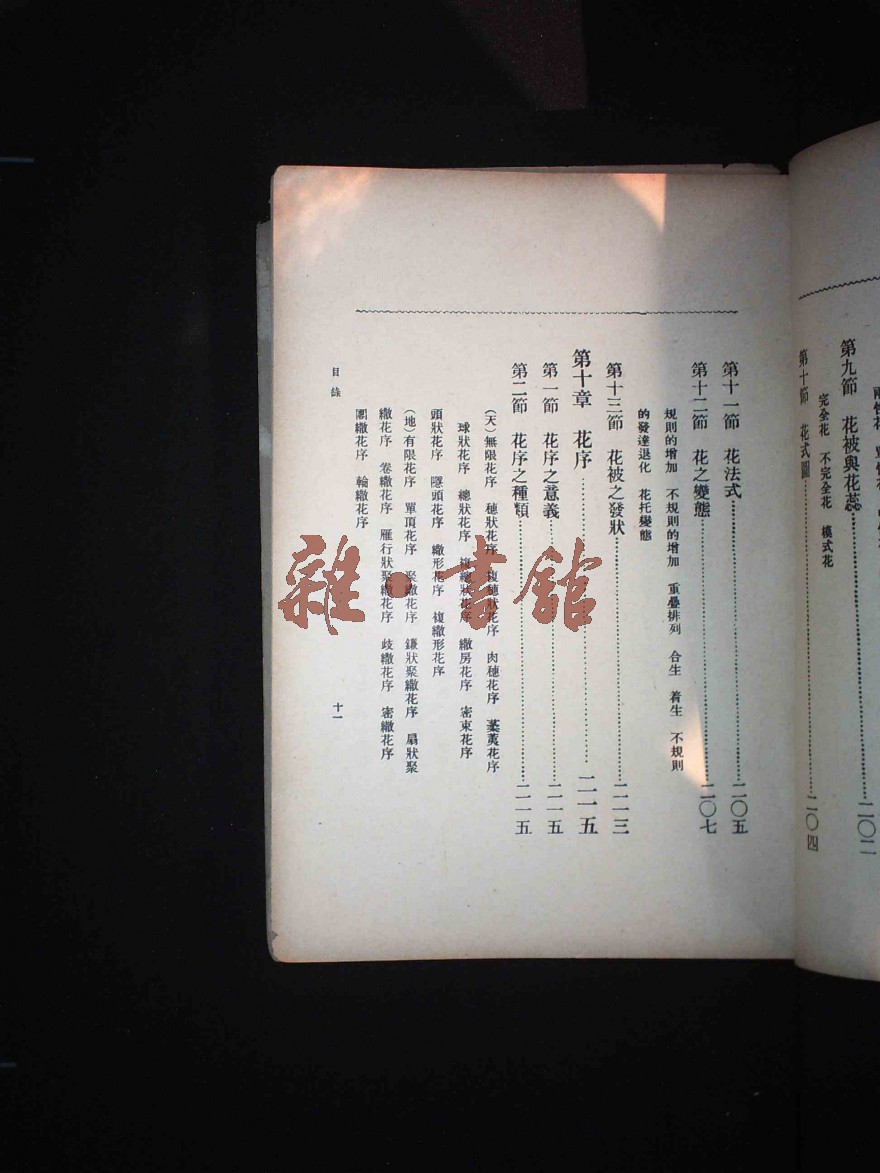 第九節　花被與花蕊……二〇二
完全花　不完全花　模式花
第十節　花式圖……二〇四
第十一節　花法式……二〇五
第十二節　花之變態……二〇七
規則的增加　不規則的增加　重疊排列　合生　着生　不規則
的發達退化　花托變態
第十三節　花被之發狀……二一三
第十章　花序……二一五
第一節　花序之意義……二一五
第二節　花序之種類……二一五
(天)無限花序　穗狀花序　複穗狀花序　肉穗花序　葇荑花序
球狀花序　總狀花序　複總狀花序　繖房花序　密束花序
頭狀花序　隱頭花序　繖形花序　複繖形花序
(地)有限花序　單頂花序　聚繖花序　鎌狀聚繖花序　扇狀聚
繖花序　卷繖花序　雁行狀聚繖花序　歧繖花序　密繖花序
團繖花序　輪繖花序
目錄
十一
雜·書館